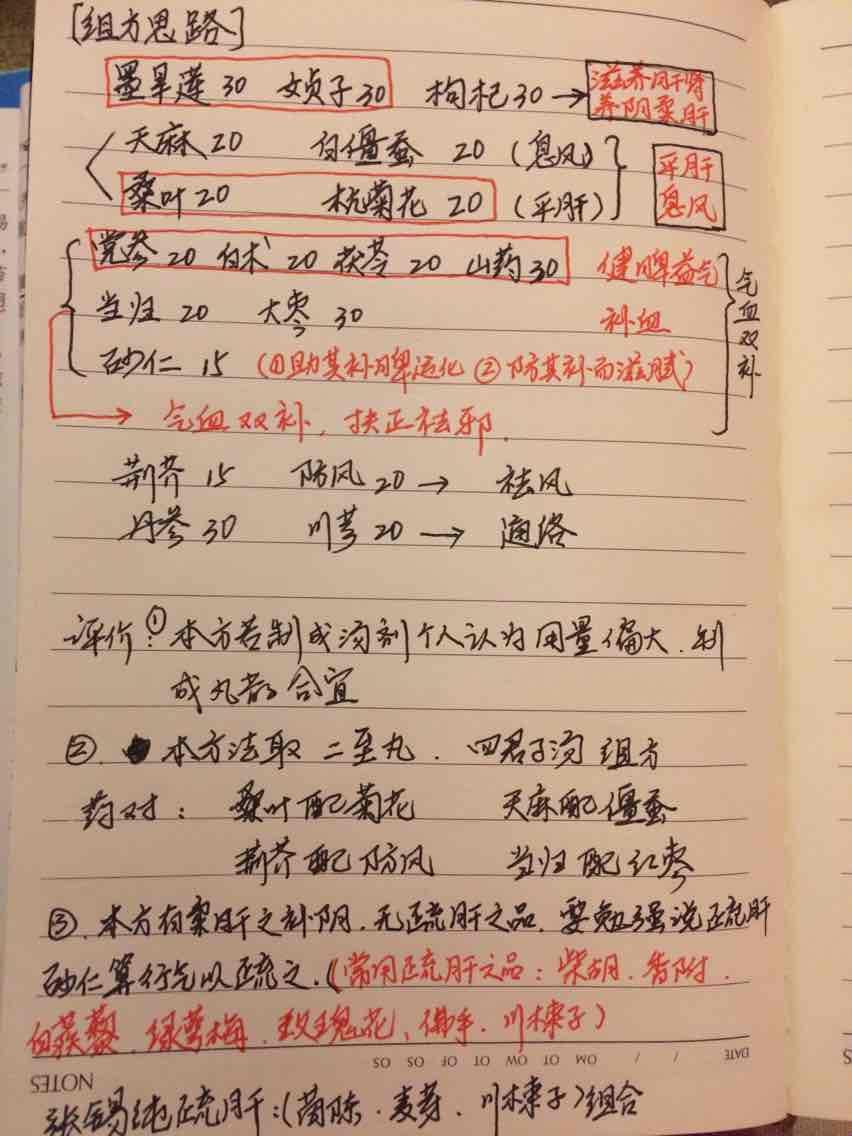 [组方思路]
墨旱莲 30 女贞子 30 枸杞 30 → 滋养肝肾
养阴柔肝
天麻 20 白僵蚕 20 (息风)
桑叶 20 杭菊花 20 (平肝)
平肝
息风
党参 20 白术 20 茯苓 20 山药 30 健脾益气
当归 20 大枣 30 补血
气血双补
砂仁 15 (①助其补脾运化 ②防其补而滋腻)
→ 气血双补, 扶正祛邪.
荆芥 15 防风 20 → 祛风
丹参 30 川芎 20 → 通络
评价: ① 本方若制成汤剂个人认为用量偏大. 制
成丸者合宜
②. 本方法取 二至丸. 四君子汤 组方
药对: 桑叶配菊花 天麻配僵蚕
荆芥配防风 当归配红枣
③. 本方有柔肝之补阴. 无疏肝之品. 要勉强说疏肝
砂仁算行气以疏之. (常用疏肝之品: 柴胡. 香附.
白蒺藜. 绿萼梅. 玫瑰花、佛手. 川楝子)
DATE / / MO TO WO TO FO SO SO
NOTES
张锡纯疏肝: (茵陈. 麦芽. 川楝子) 组合